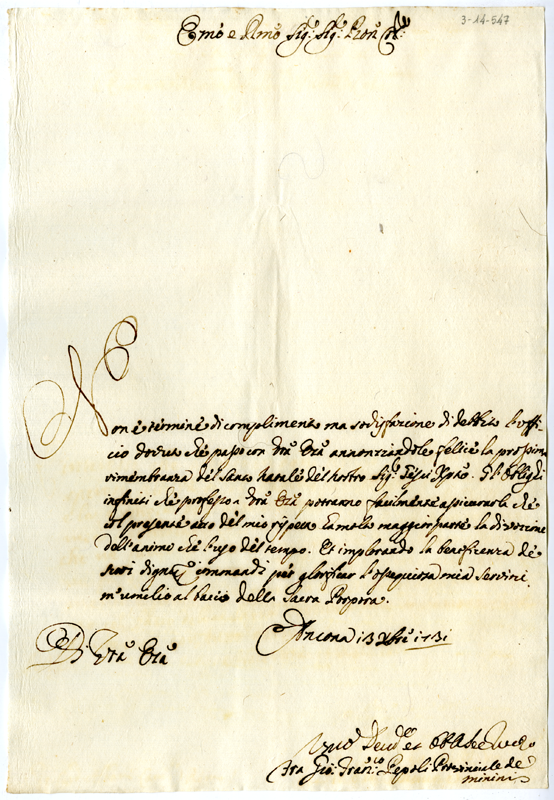 3-14-547
Emo e Rmo Sig.r Sig.r Pron Col.mo
Non è termine di complimento ma sodisfazione di debito l'uffi-
cio divoto che passo con Vra Eza annonziandole felice la prossima
rimembranza del Santo Natale del nostro Sig.re Giesù Xpto. Gl'oblighi
infiniti che professo a Vra Eza potranno facilmente assicurarla che
il presente atto del mio rispetto ha molto maggior parte la divozione
dell'animo che l'uso del tempo. Et implorando la beneficenza de
suoi degni commandi per glorificar l'ossequiosa mia servitù
m'umilio al bacio della Sacra Porpora.
Di Vra Eza
Ancona 13 Xbre 1731
Umo Devmo et Obb
Fra Gio: Fran.co Pepoli Provinciale de
minimi